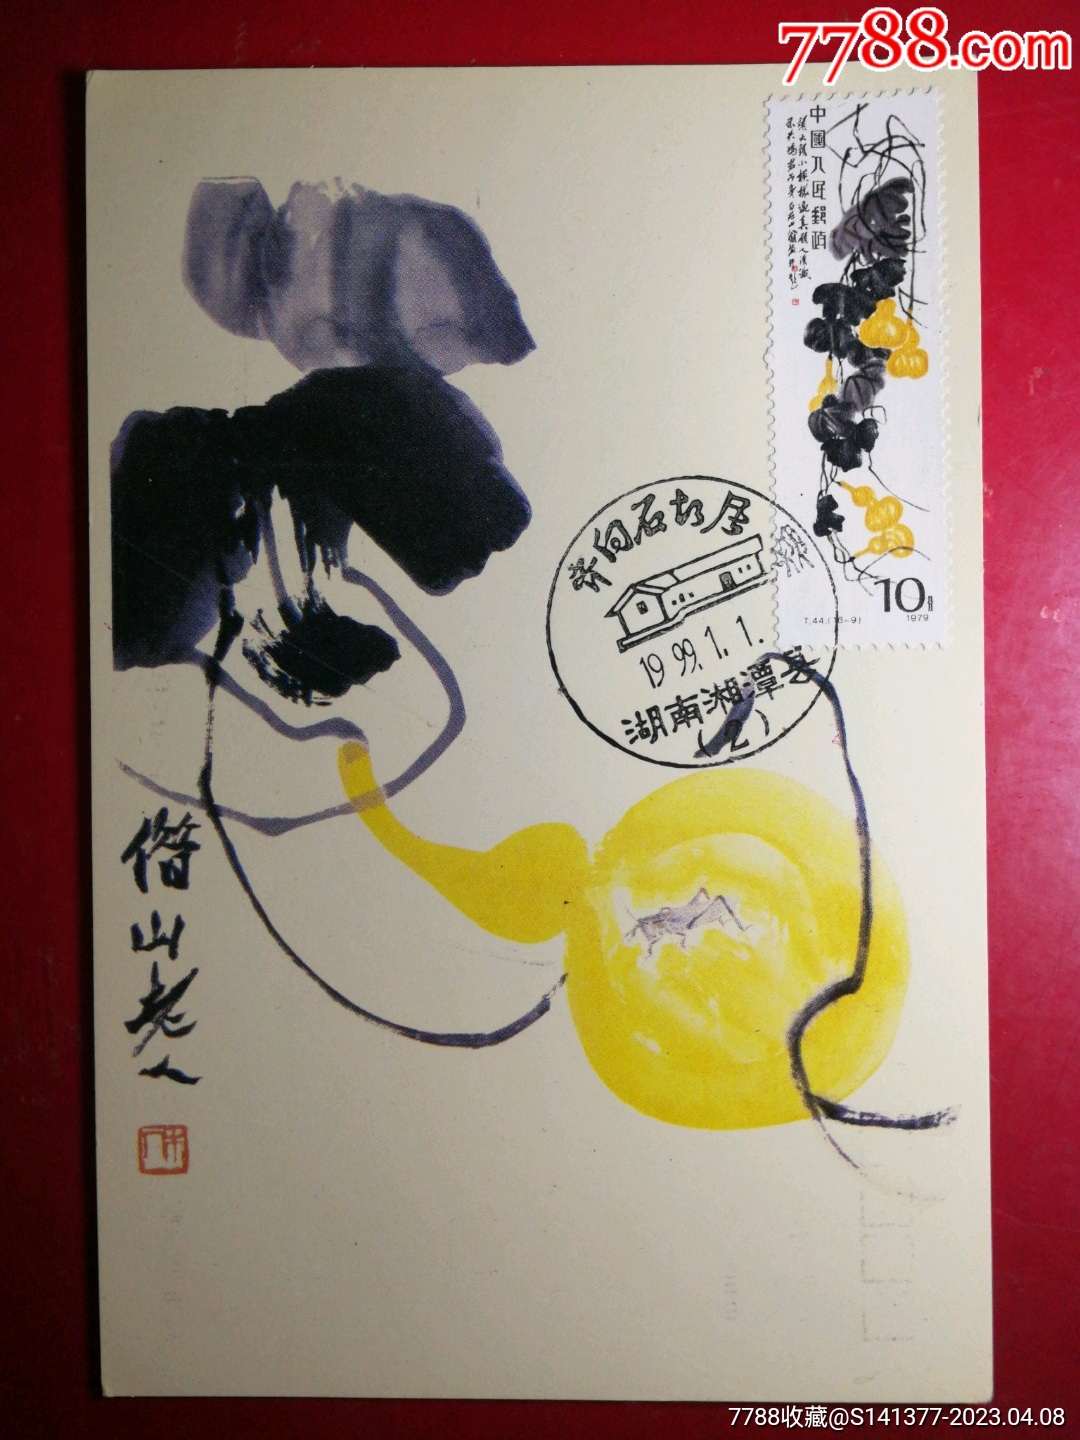 7788.com
中國人民郵政
10分
T.44.(16-9)
1979
齐白石故居
1999.1.1.
湖南湘潭县
(2)
借山老人
7788收藏@S141377-2023.04.08